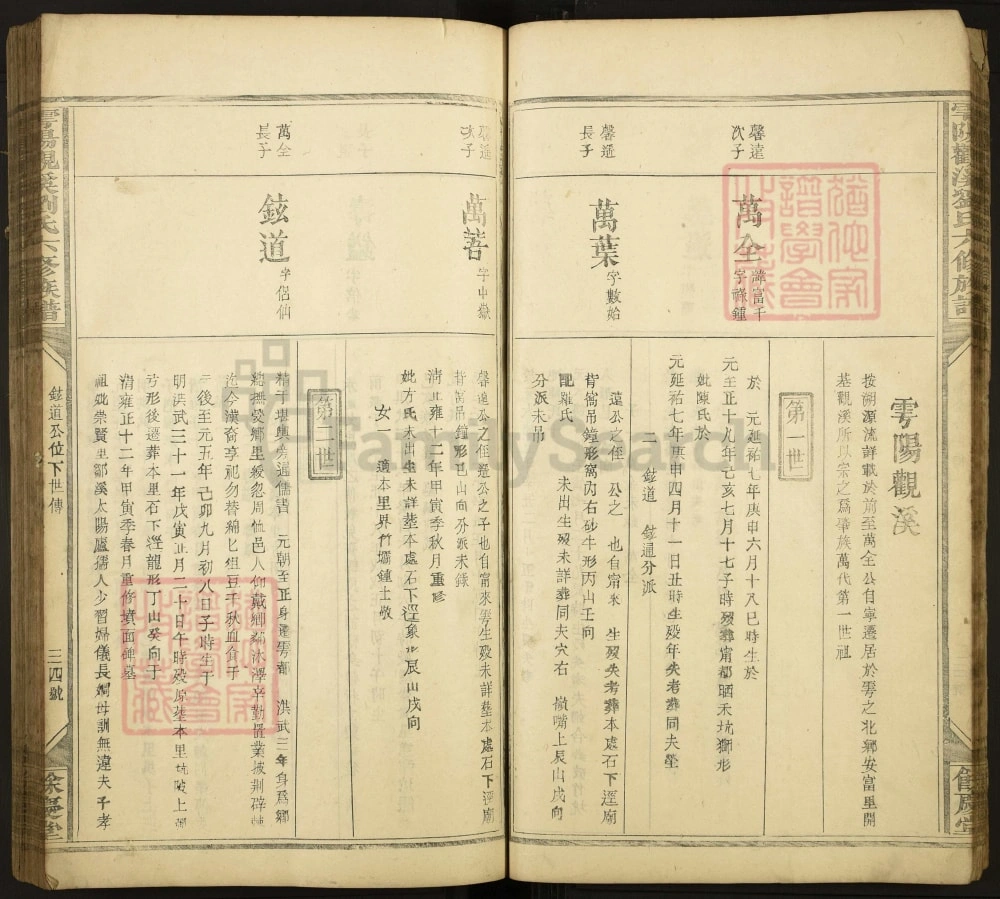 雩陽觀溪劉氏六修族譜
餘慶堂
雩陽觀溪
按溯源流詳載於前至萬全公自寧遷居於雩之北鄉安富里開
基觀溪所以宗之爲肇族萬代第一世祖
第一世
馨遠次子
萬全
諱富千
字祿鍾
於 元延祐七年庚申六月十八巳時生於
元至正十九年己亥七月十七子時歿葬甯都晒禾坑獅形
妣陳氏於
元延祐七年庚申四月十一日丑時生歿年失考葬同夫塋
二 鉉道 鉉通分派
馨遜長子
萬葉
字數始
遠公之侄 公之 也自甯來 生歿失考葬本處石下逕廟
背僑吊鐘形窩內右砂牛形丙山壬向
配羅氏 未出生歿未詳葬同夫穴右 嶺嘴上辰山戌向
分派未吊
馨遜次子
萬菩
字中嶽
馨遠公之侄 遜公之子也自甯來雩生歿未詳塟本處石下逕廟
背僑吊鐘形巳山向分派未錄
清正雍十二年甲寅季秋月重修
妣方氏未出生未詳塟本處石下逕象形辰山戌向
女一 適本里界竹壩鍾士敬
第二世
萬全長子
鉉道
字侶仙
精于堪輿旁通儒書 元朝至正身逢雩都 洪武三年身爲鄉
總撫愛鄉里綏忽周恤邑人仰戴鄉鄰沐澤辛勤置業披荆辟棘
迄今漢裔享祀勿替綿匕俎豆千秋血食于
後至元五年己卯九月初八日子時生于
明洪武三十一年戊寅正月二十日午時歿原塟本里坑陂上
弓形後遷葬本里石下逕龍形丁山癸向于
清雍正十二年甲寅季春月重修墳面碑墓
祖妣崇賢里鄒溪太陽廬孺人少習婦儀長嫻母訓無違夫子孝
雩陽觀溪劉氏六修族譜
鉉道公位下世傳
三四號
餘慶堂
FamilySearch